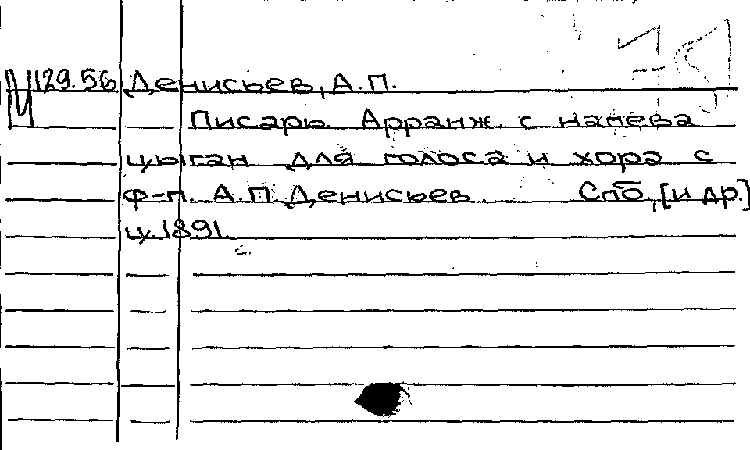 М 129.56 Денисьев, А.П.
Писарь. Арранж. с напева
цыган для голоса и хора с
ф-п. А.П. Денисьев. Спб., [и др.]
ц. 1891.